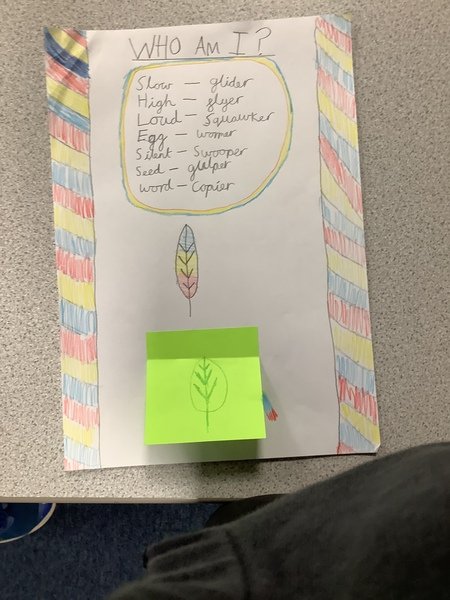 WHO AM I?
Slow - glider
High - flyer
Loud - Squawker
Egg - wormer
Silent - Swooper
Seed - gulper
word - Copier